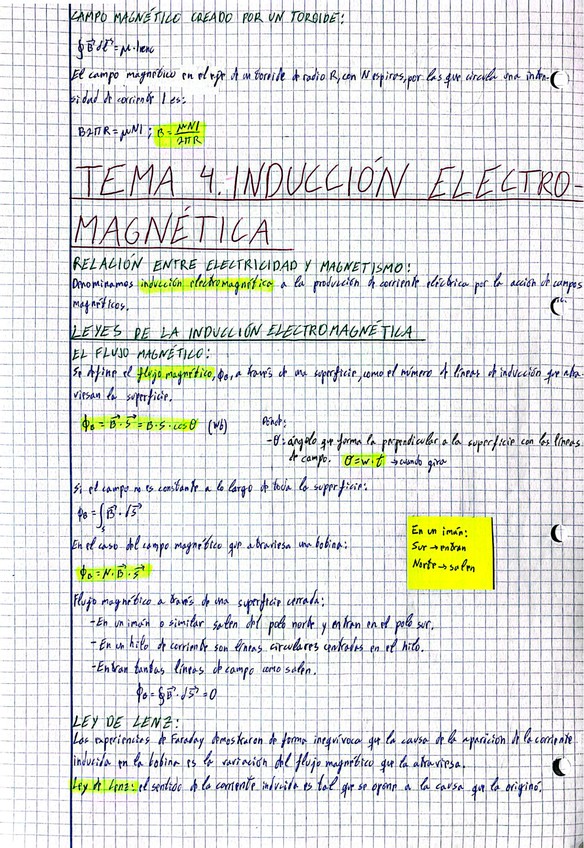 CAMPO MAGNÉTICO CREADO POR UN TOROIDE:
∮B⃗ dl⃗ = μ·Ienc
El campo magnético en el eje de un toroide de radio R, con N espiras, por las que circula una inten-
sidad de corriente I es:
B2πR = μNI ; B = μNI / 2πR
TEMA 4. INDUCCIÓN ELECTRO-
MAGNÉTICA
RELACIÓN ENTRE ELECTRICIDAD Y MAGNETISMO:
Denominamos inducción electromagnética a la producción de corriente eléctrica por la acción de campos
magnéticos.
LEYES DE LA INDUCCIÓN ELECTROMAGNÉTICA
EL FLUJO MAGNÉTICO:
Se define el flujo magnético, ϕB, a través de una superficie, como el número de líneas de inducción que atra-
viesan la superficie.
ϕB = B⃗ · S⃗ = B·S·cosθ (Wb)
Donde:
-θ: ángulo que forma la perpendicular a la superficie con las líneas
de campo. θ=w·t → cuando gira
Si el campo no es constante a lo largo de toda la superficie:
ϕB = ∫s B⃗ · dS⃗
En el caso del campo magnético que atraviesa una bobina:
ϕB = N·B⃗·S⃗
En un imán:
Sur → entran
Norte → salen
Flujo magnético a través de una superficie cerrada:
-En un imán o similar salen del polo norte y entran en el polo sur.
-En un hilo de corriente son líneas circulares centradas en el hilo.
-Entran tantas líneas de campo como salen.
ϕB = ∮B⃗ · dS⃗ = 0
LEY DE LENZ:
Las experiencias de Faraday demostraron de forma inequívoca que la causa de la aparición de la corriente
inducida en la bobina es la variación del flujo magnético que la atraviesa.
Ley de Lenz: el sentido de la corriente inducida es tal que se opone a la causa que la originó.